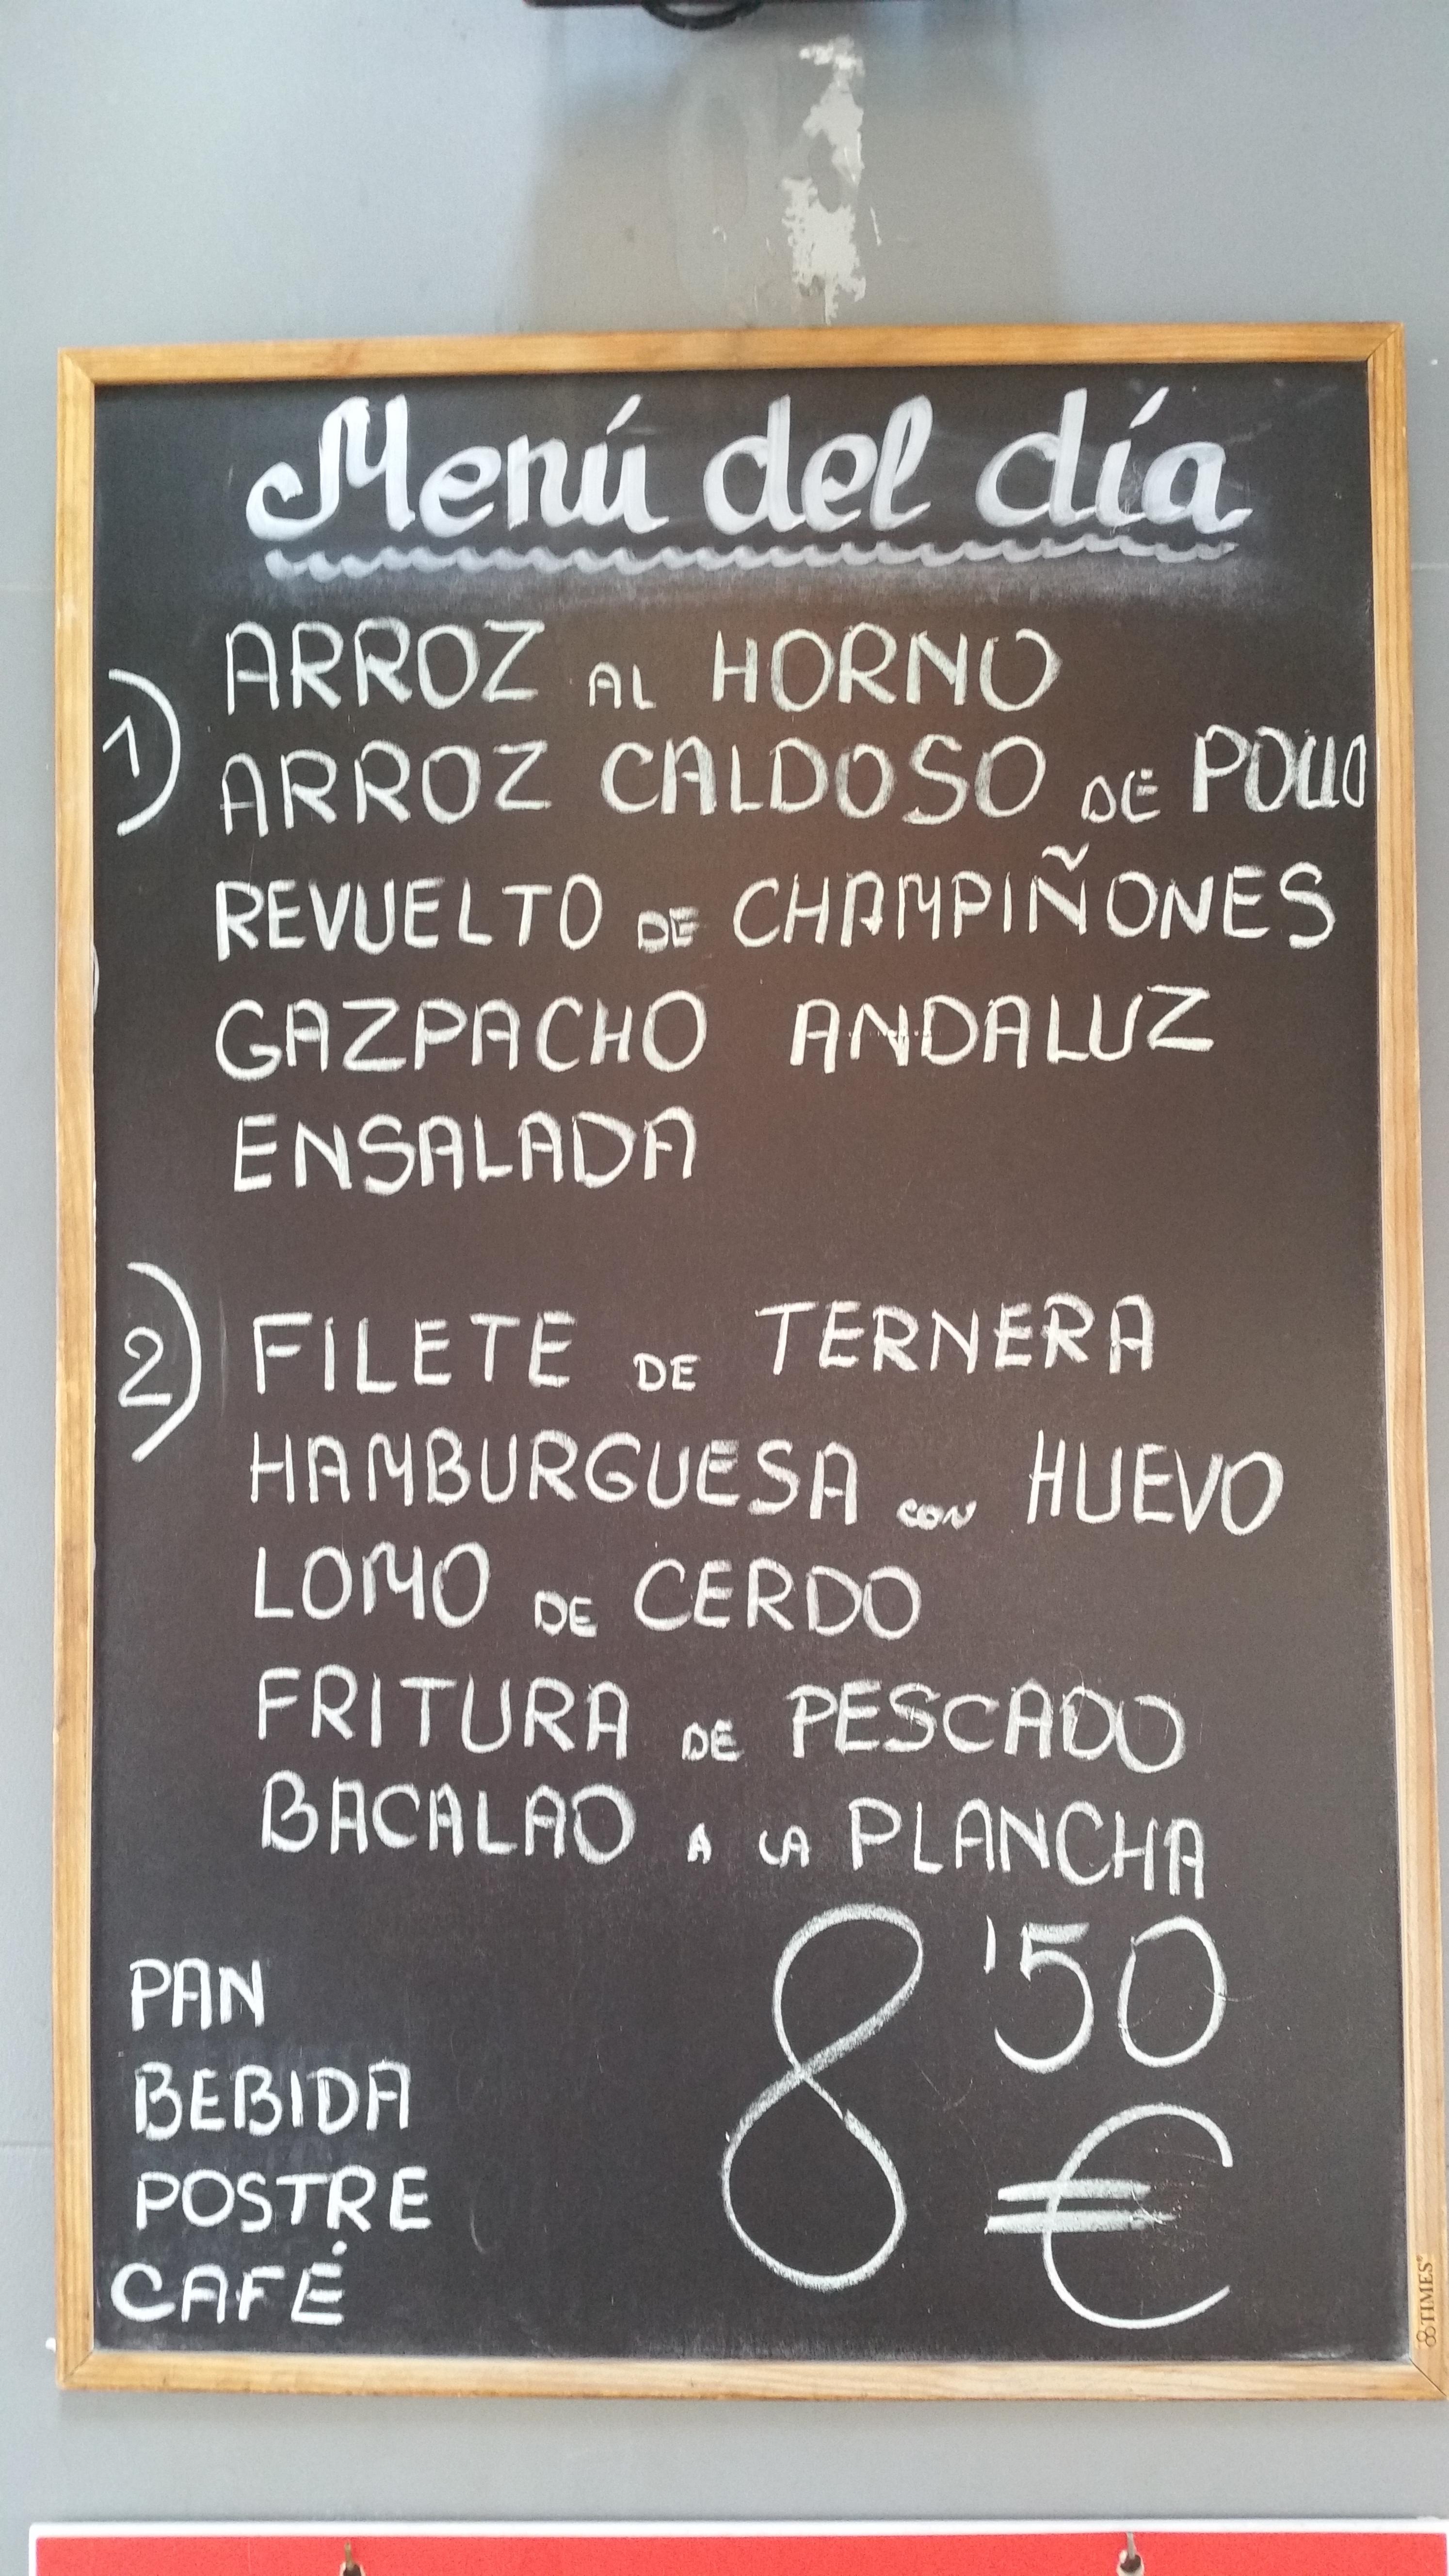 Menú del día
1) ARROZ AL HORNO
ARROZ CALDOSO DE POLLO
REVUELTO DE CHAMPIÑONES
GAZPACHO ANDALUZ
ENSALADA
2) FILETE DE TERNERA
HAMBURGUESA CON HUEVO
LOMO DE CERDO
FRITURA DE PESCADO
BACALAO A LA PLANCHA
PAN
BEBIDA
POSTRE
CAFÉ
8'50 €
TIMES